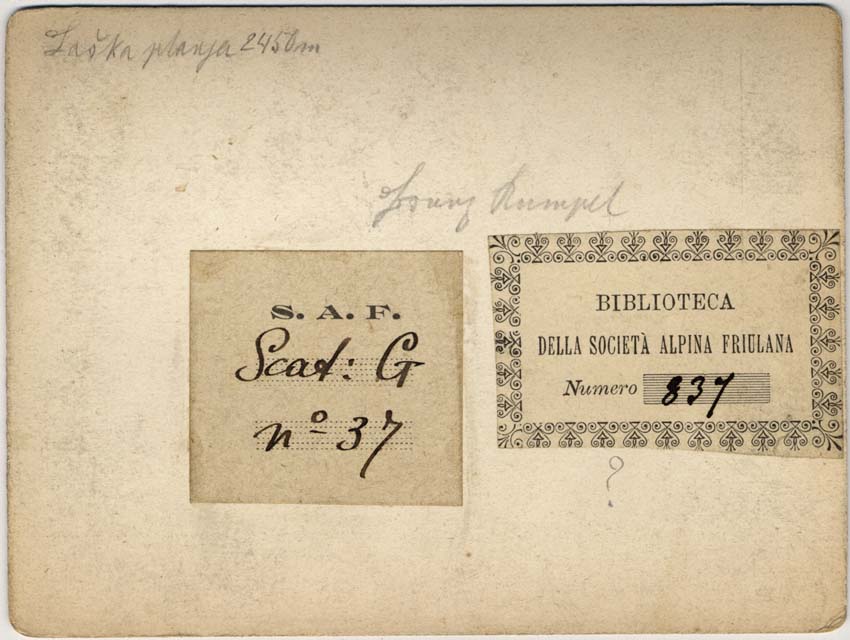 Laška planja 2450m
Franz Rumpel
S. A. F.
Scat: G
nº 37
BIBLIOTECA
DELLA SOCIETÀ ALPINA FRIULANA
Numero 837
?